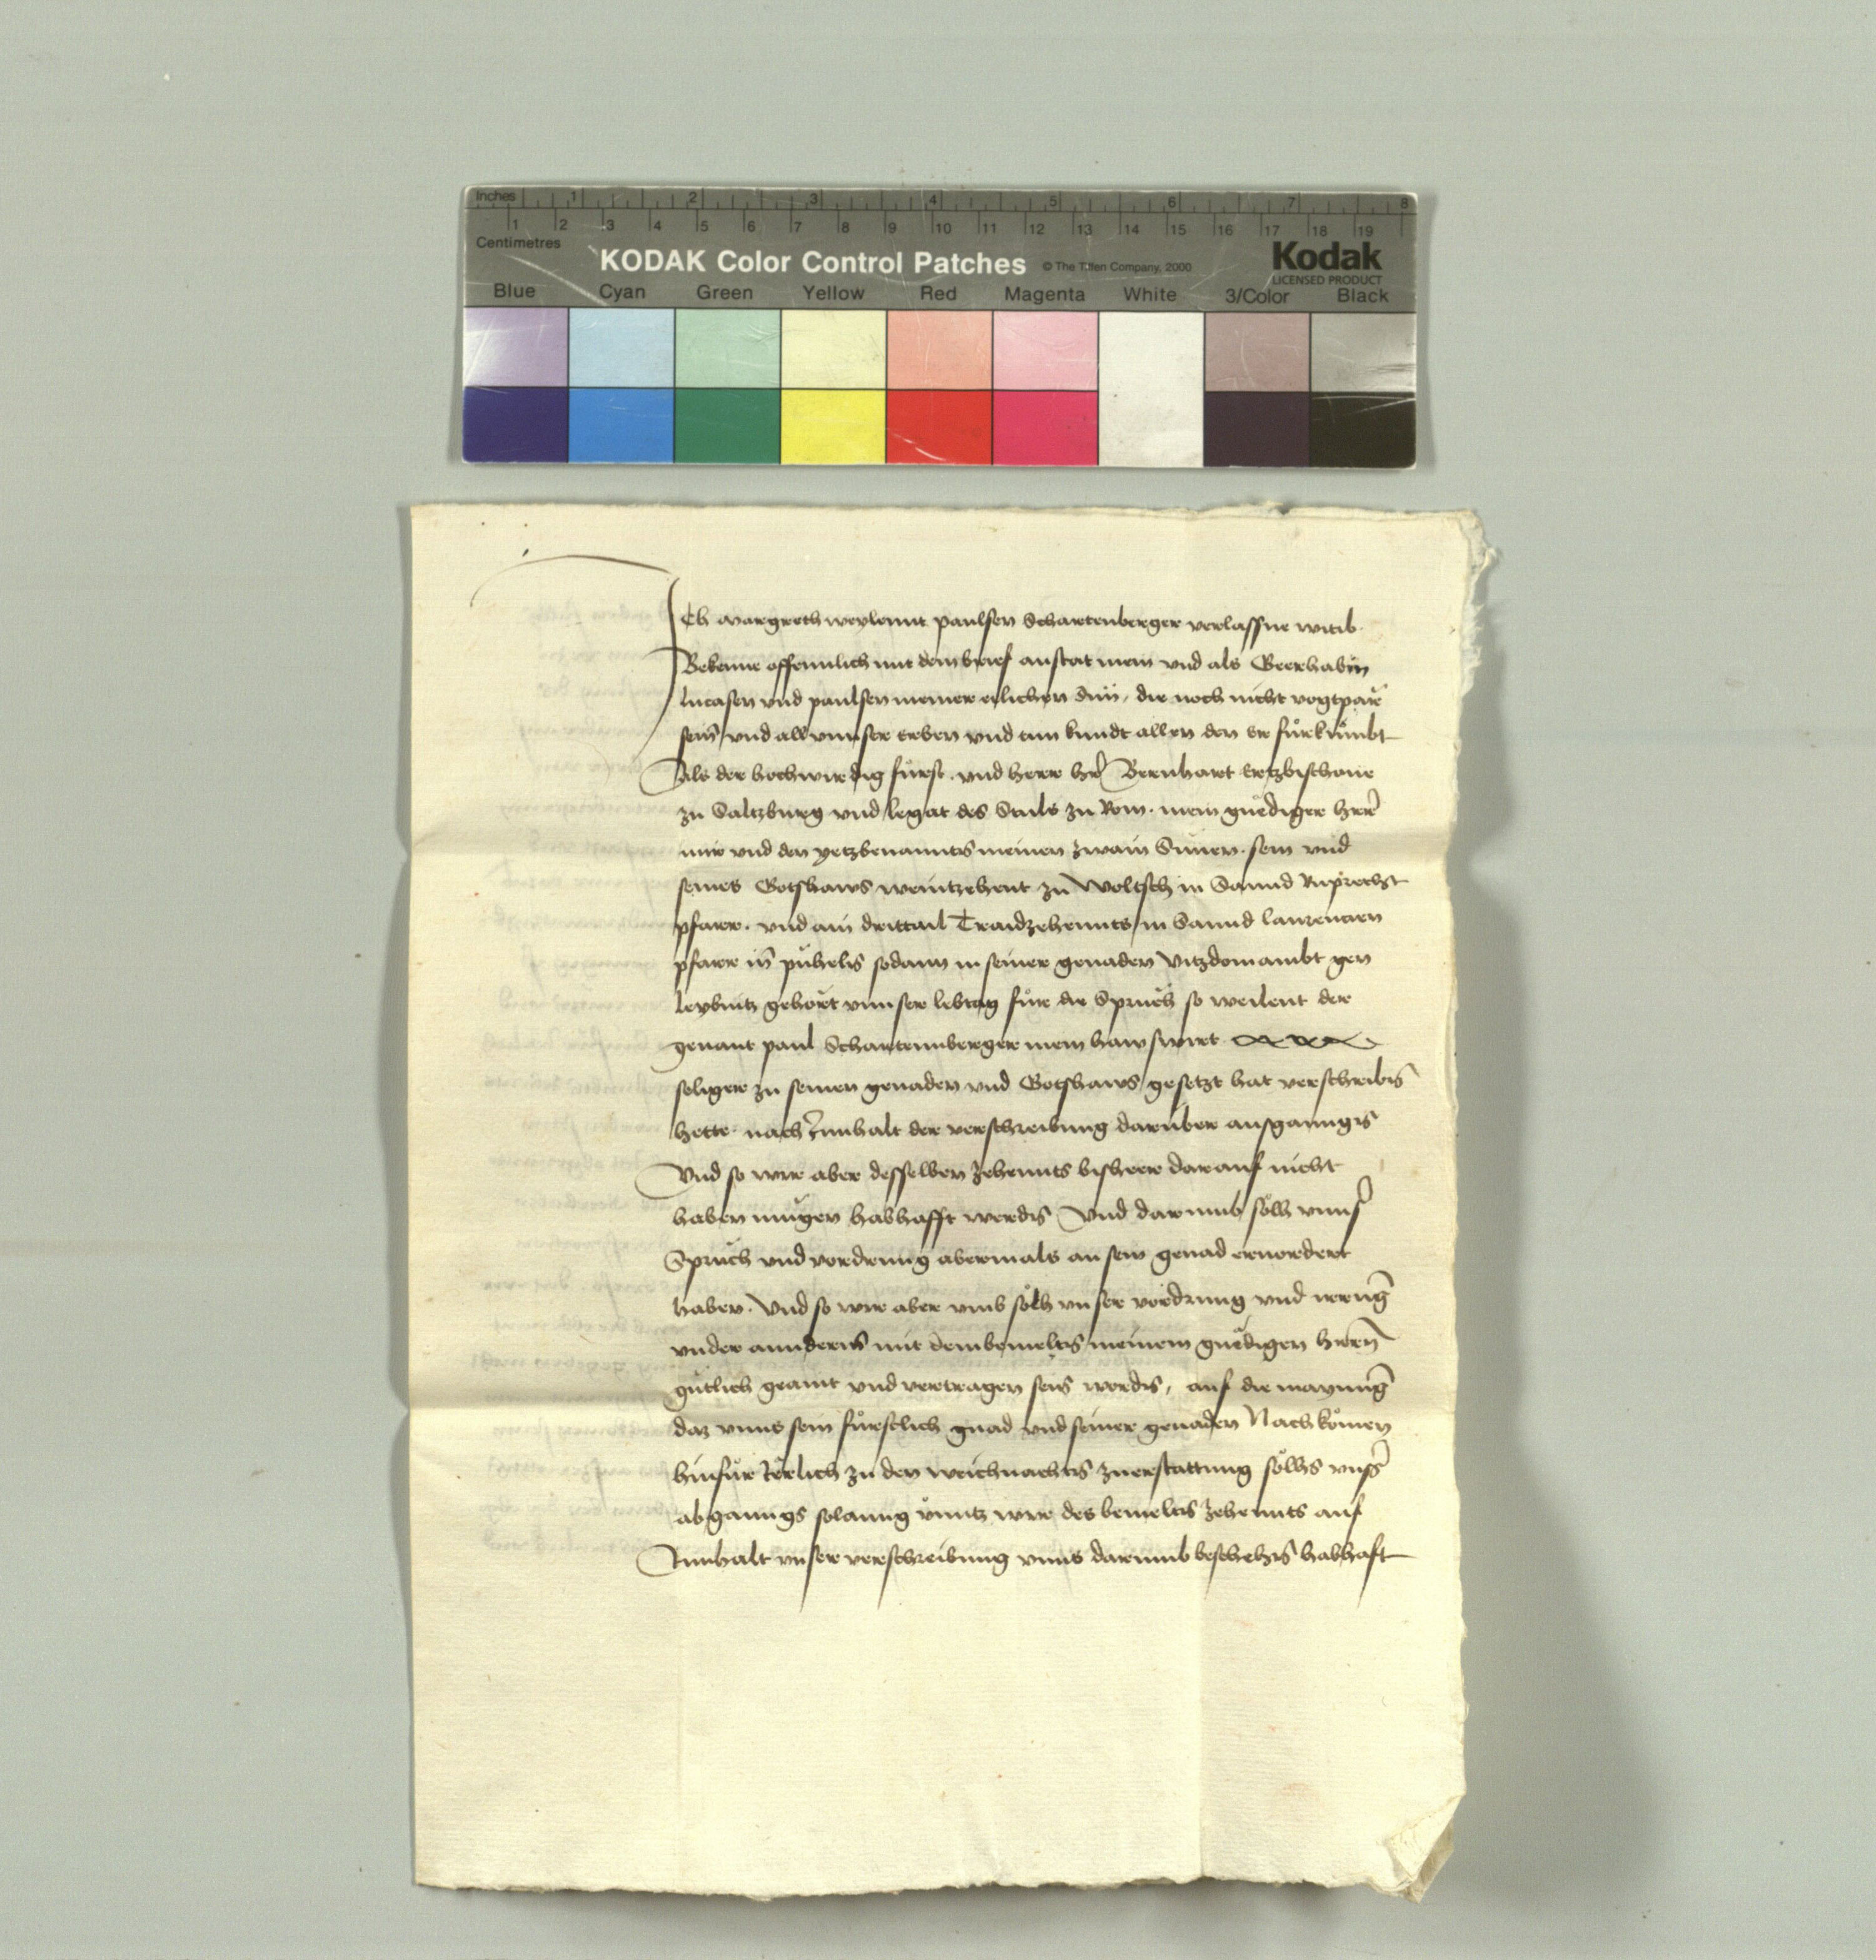 Inches 1 2 3 4 5 6 7 8
1 2 3 4 5 6 7 8 9 10 11 12 13 14 15 16 17 18 19
Centimetres
KODAK Color Control Patches © The Tiffen Company, 2000 Kodak
LICENSED PRODUCT
Blue Cyan Green Yellow Red Magenta White 3/Color Black
Ich Margreth weylennt paulsen Schartenberger verlassne witib
Bekenne offennlich mit dem brief anstat mein vnd als Geerhabin
lucasen vnd paulsen meiner elichen Sün, die noch nicht vogtpare
sein vnd all vnnser erben vnd tun kundt allen den er fürkumbt
Als der hochwirdig fürst vnd herr her Bernhart Ertzbischoue
zu Saltzburg vnd legat des Stuls zu Rom mein gnediger herr
mir vnd den yetzbenannten meinen zwain Sünen sein vnd
seines Gotshaws weintzehent zu Woltsch in Sannd Ruprecht
pfarr. vnd ain drittail Traidzehennts in Sannd laurencien
pfarr in pühelen sodann in seiner genaden Vitzdomambt gen
leybnitz gehört vnnser lebtag für die Sprüch so weilent der
genant paul Schartennberger mein hawswirt
seliger zu seinen genaden vnd Gotshaws gesetzt hat verschriben
hette. nach Innhalt der verschreibung darüber ausganngen
Vnd so wir aber desselben zehennts bisheer darauf nicht
haben mügen habhafft werden Vnd darumb sölh vnnser
Sprüch vnd vordrung abermals an sein genad eruordert
haben. Vnd so wir aber vmb sölh vnser vordrung vnd irrung
vnder annderm mit dem bemelten meinem gnedigen herrn
gütlich geaint vnd vertragen sein worden, auf die maynung
daz vnns sein fürstlich gnad vnd seiner genaden Nachkömen
hinfür Jerlich zu den weichnachten zuerstattung sölhs vnsers
abganngs solanng vnntz wir des bemelten zehennts auf
Innhalt vnser verschreibung vnns darumb beschehen habhaft